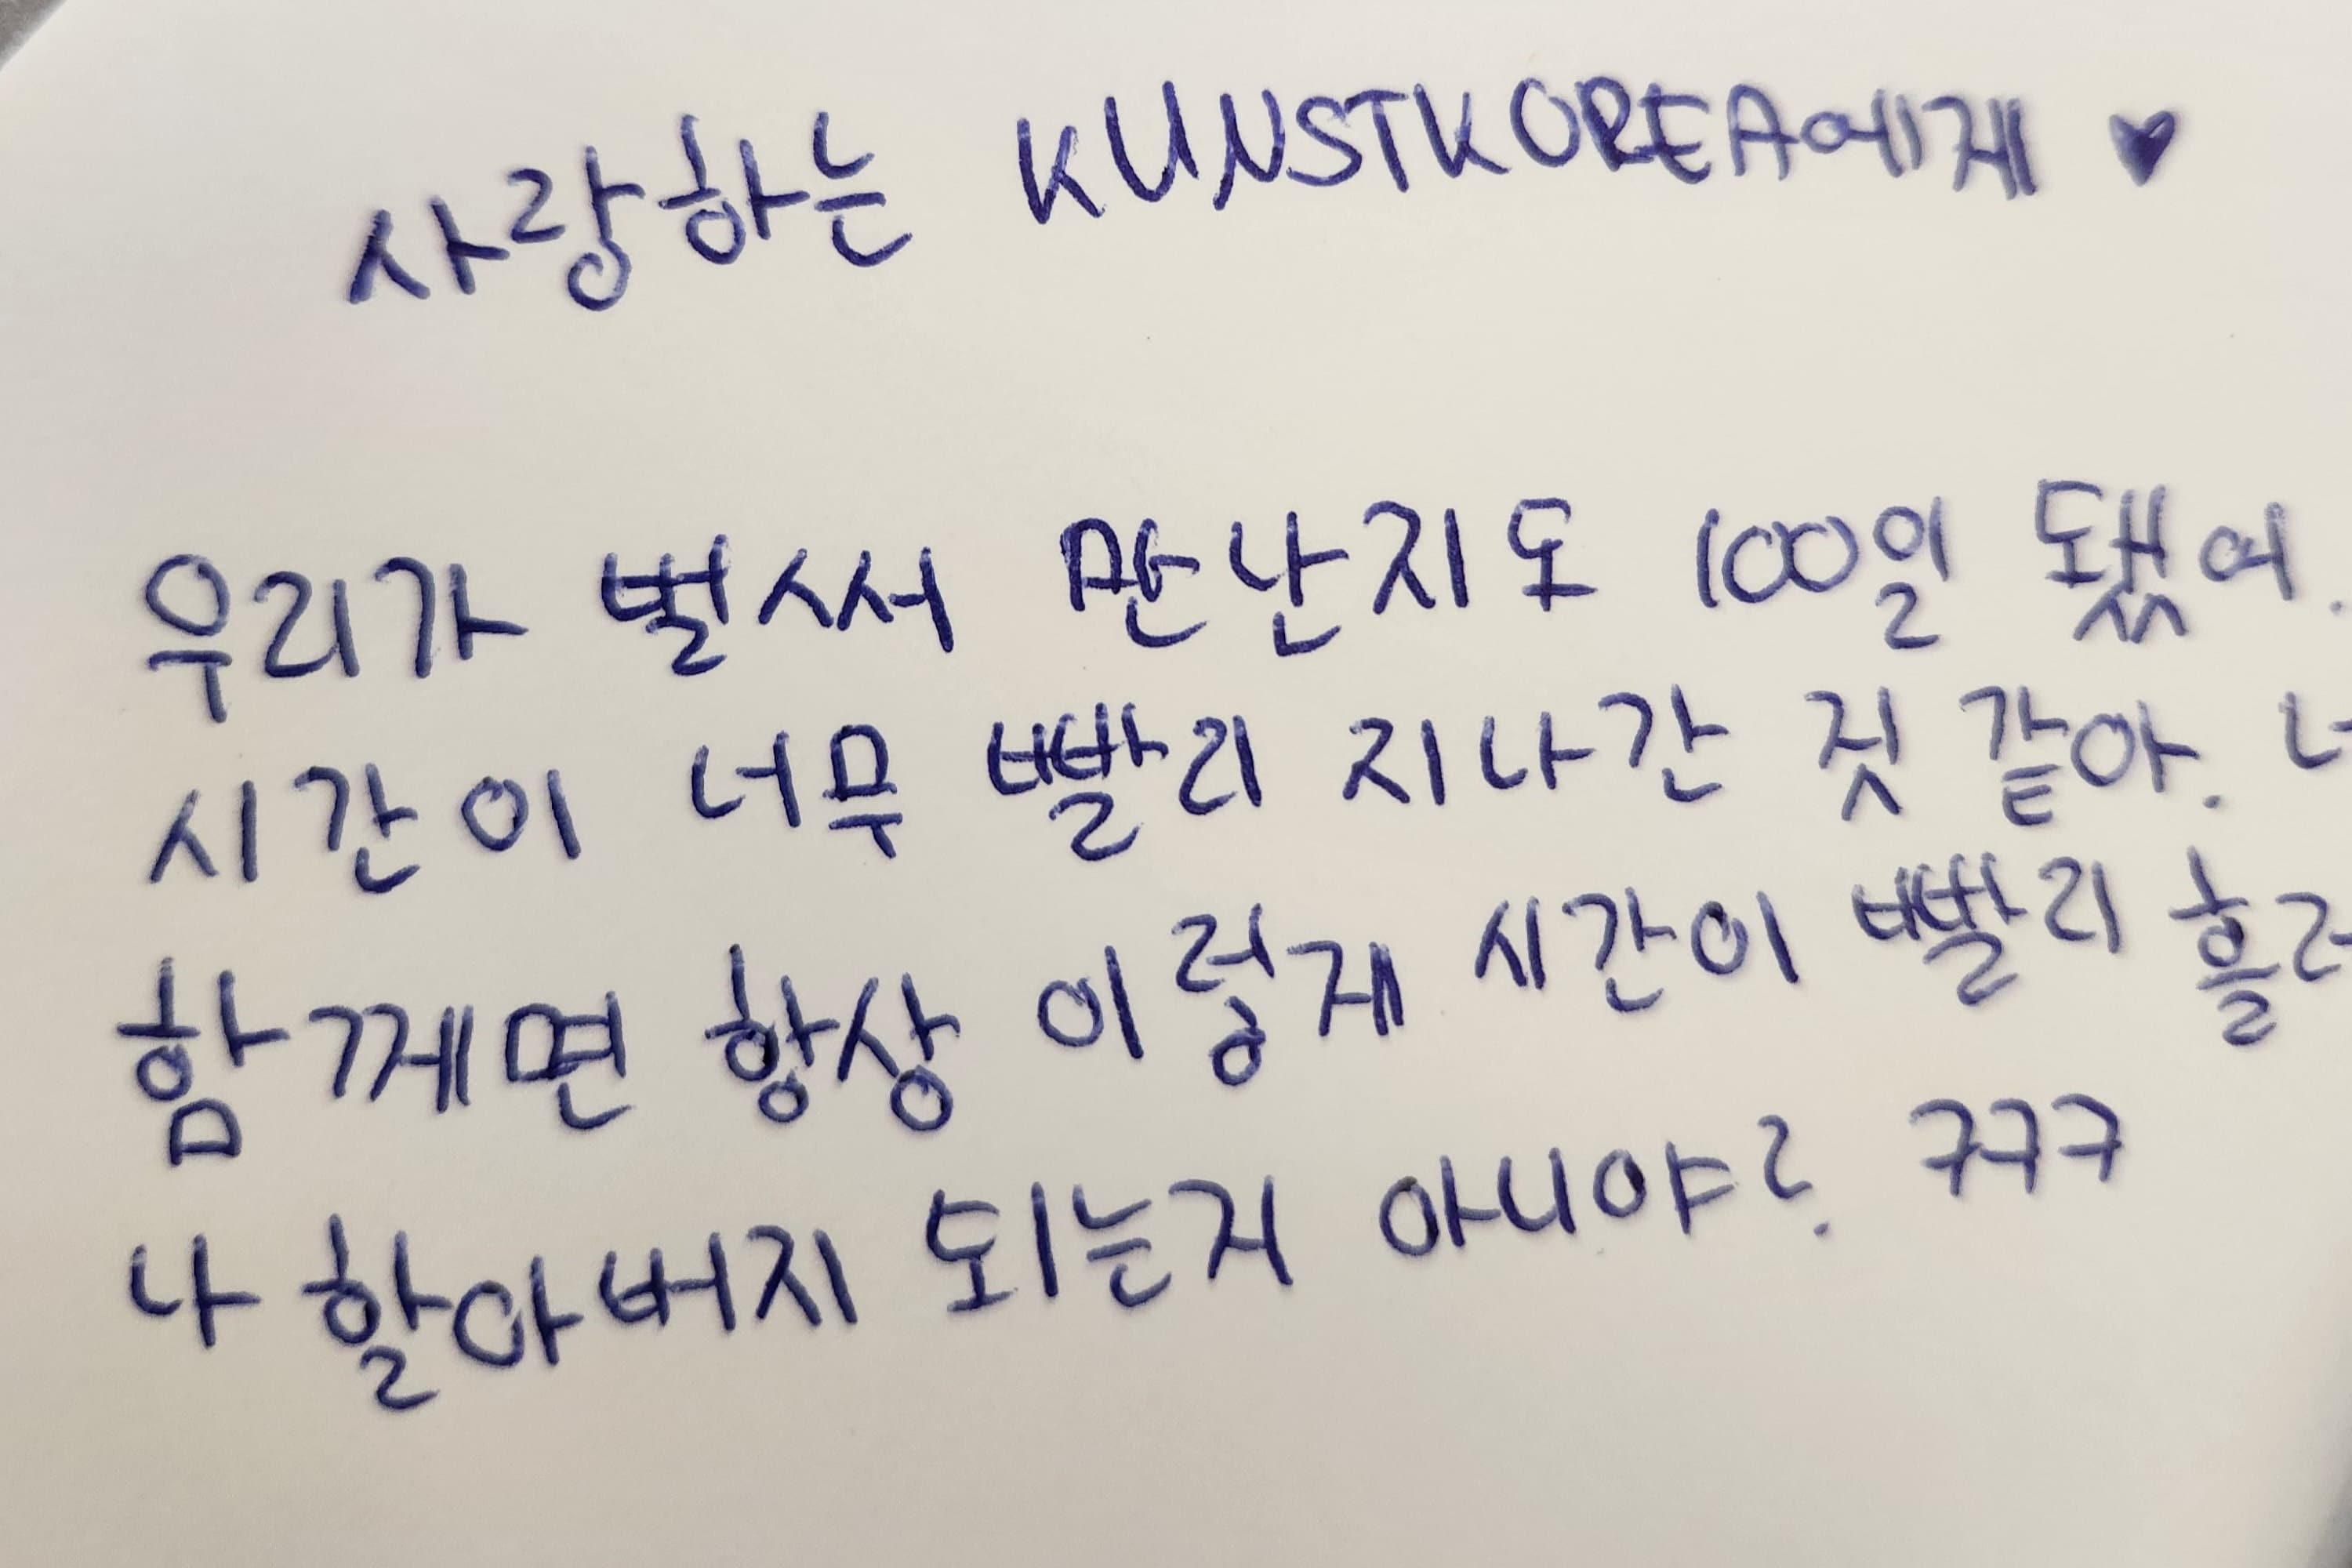 사랑하는 KUNSTKOREA에게 ♥
우리가 벌써 만난지도 100일 됐어.
시간이 너무 빨리 지나간 것 같아.
함께면 항상 이렇게 시간이 빨리
나 할아버지 되는거 아니야? ㅋㅋㅋ